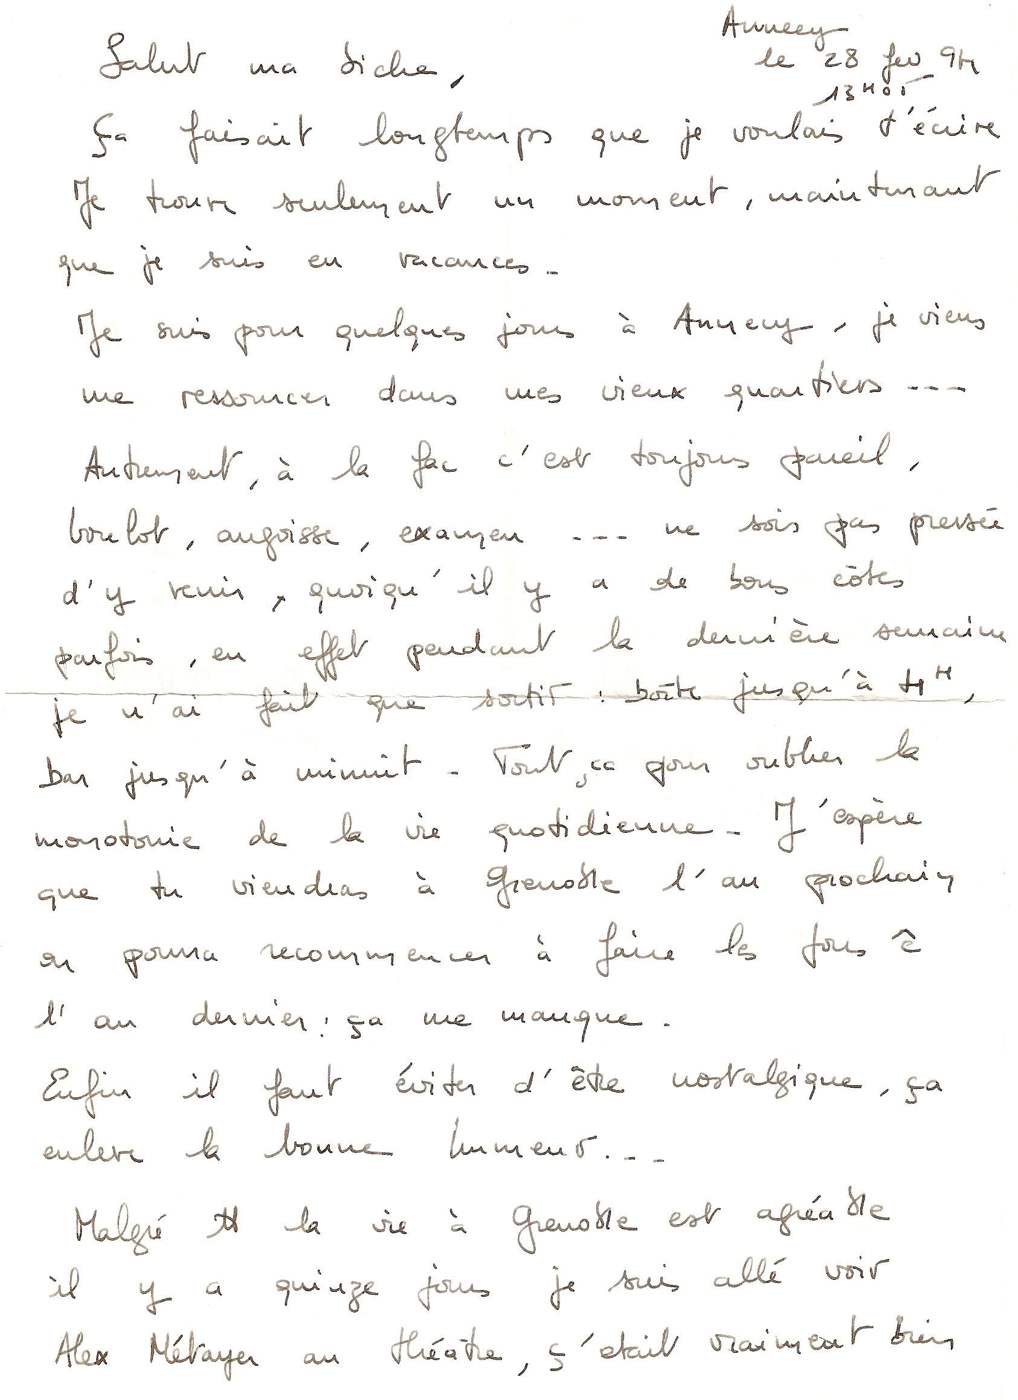 Annecy
le 28 fev 94
13H05
Salut ma biche,
ça faisait longtemps que je voulais t'écrire
Je trouve seulement un moment, maintenant
que je suis en vacances.
Je suis pour quelques jours à Annecy, je viens
me ressourcer dans mes vieux quartiers ---
Autrement, à la fac c'est toujours pareil,
boulot, angoisse, examen --- ne sois pas pressée
d'y venir, quoiqu'il y a de bons côtés
parfois, en effet pendant la dernière semaine
je n'ai fait que sortir : boîte jusqu'à 4H,
bar jusqu'à minuit - Tout ça pour oublier la
monotonie de la vie quotidienne - J'espère
que tu viendras à Grenoble l'an prochain
on pourra recommencer à faire les fous ĉ
l'an dernier : ça me manque.
Enfin il faut éviter d'être nostalgique, ça
enlève la bonne humeur...
Malgré tt la vie à Grenoble est agréable
il y a quinze jours je suis allé voir
Alex Métayer au théâtre, ç'etait vraiment bien